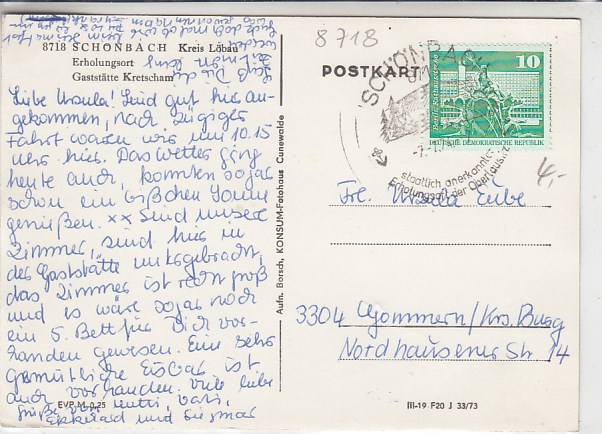 8718 SCHÖNBACH Kreis Löbau
Erholungsort
Gaststätte Kretscham
Liebe Ursula! Sind gut hier an-
gekommen, nach zügiger
Fahrt waren wir um 10.15
Uhr hier. Das Wetter ging
heute auch, konnten sogar
schon ein bißchen Sonne
genießen. xx Sind unsere
Zimmer, sind hier in
der Gaststätte untergebracht,
das Zimmer ist recht groß
und es wäre sogar noch
ein 5. Bett für Dich vor-
handen gewesen. Eine sehr
gemütliche Eisbar ist
auch vorhanden. Viele liebe
Grüße von Mutti, Vati,
Ekkehard und Siegmar
EVP M 0,25
Aufn. Borsch, KONSUM-Fotohaus Cunewalde
8718
POSTKARTE
SCHÖNBACH
8718
staatlich anerkannter
Erholungsort der Oberlausitz
10
DEUTSCHE DEMOKRATISCHE REPUBLIK
4,-
Frl. Ursula Eube
3304 Gommern/Krs. Burg
Nordhausener Str. 14
III-19 F20 J 33/73